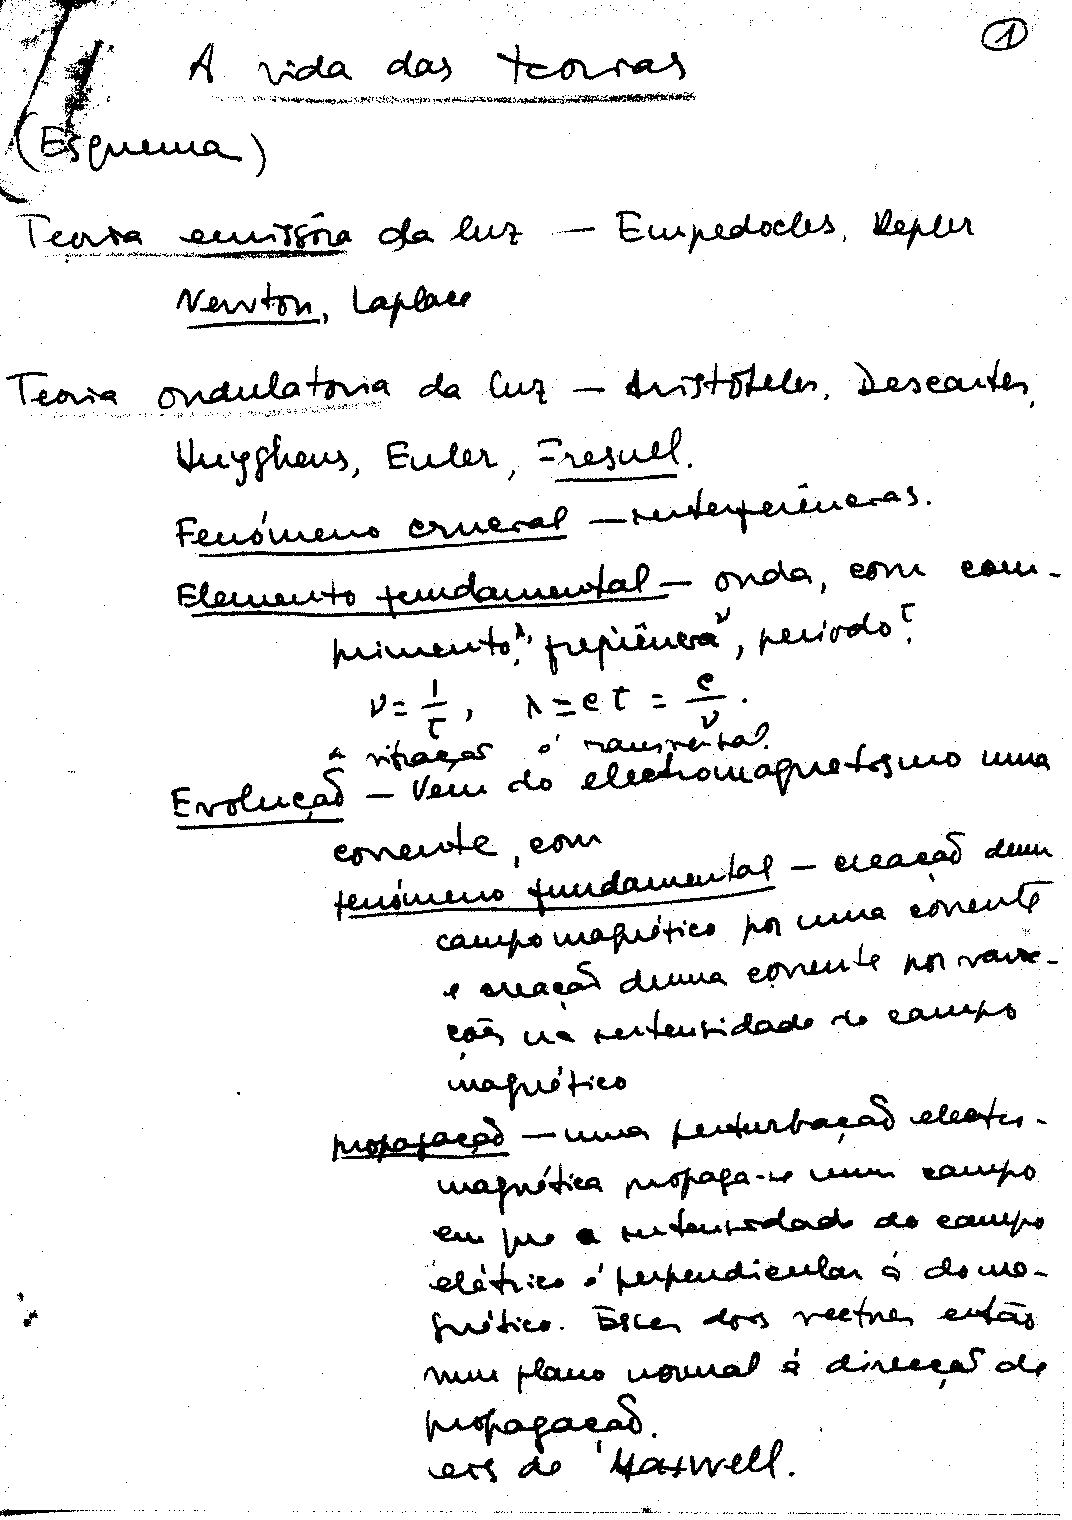 ①
A vida das teorias
(Esquema)
Teoria emissôra da luz — Empedocles, Kepler
Newton, Laplace
Teoria ondulatoria da luz — Aristóteles, Descartes,
Huyghens, Euler, Fresnel.
Fenómeno crucial — interferências.
Elemento fundamental — onda, com com-
primento λ, frequência ν, período τ.
ν = 1/τ, λ = cτ = c/ν.
A vibração é transversal.
Evolução — Vem do electromagnetismo uma
corrente, com
fenómeno fundamental — creação dum
campo magnético por uma corrente
e creação duma corrente por varia-
ções na intensidade do campo
magnético
propagação — uma perturbação electro-
magnética propaga-se num campo
em que a intensidade do campo
elétrico é perpendicular á do ma-
gnético. Esses dois vectores estão
num plano normal á direcção de
propagação.
leis de Maxwell.